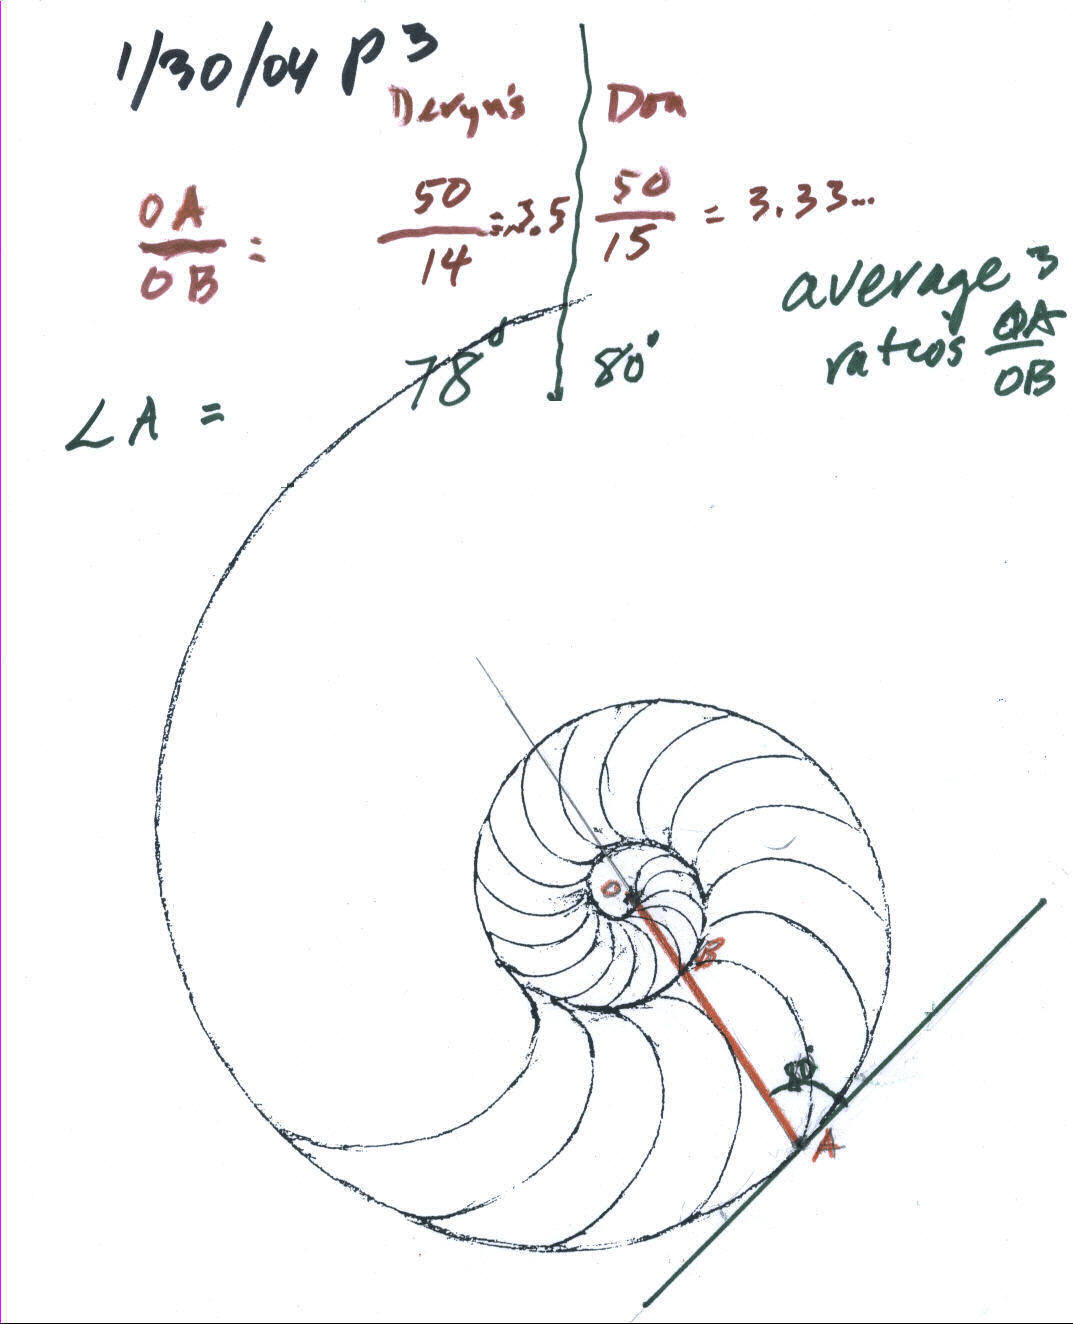 1/30/04 P 3
Deryn's Don
OA/OB = 50/14 = 3.5 50/15 = 3.33...
average 3
ratios OA/OB
∠A = 78° 80°
O
B
80°
A